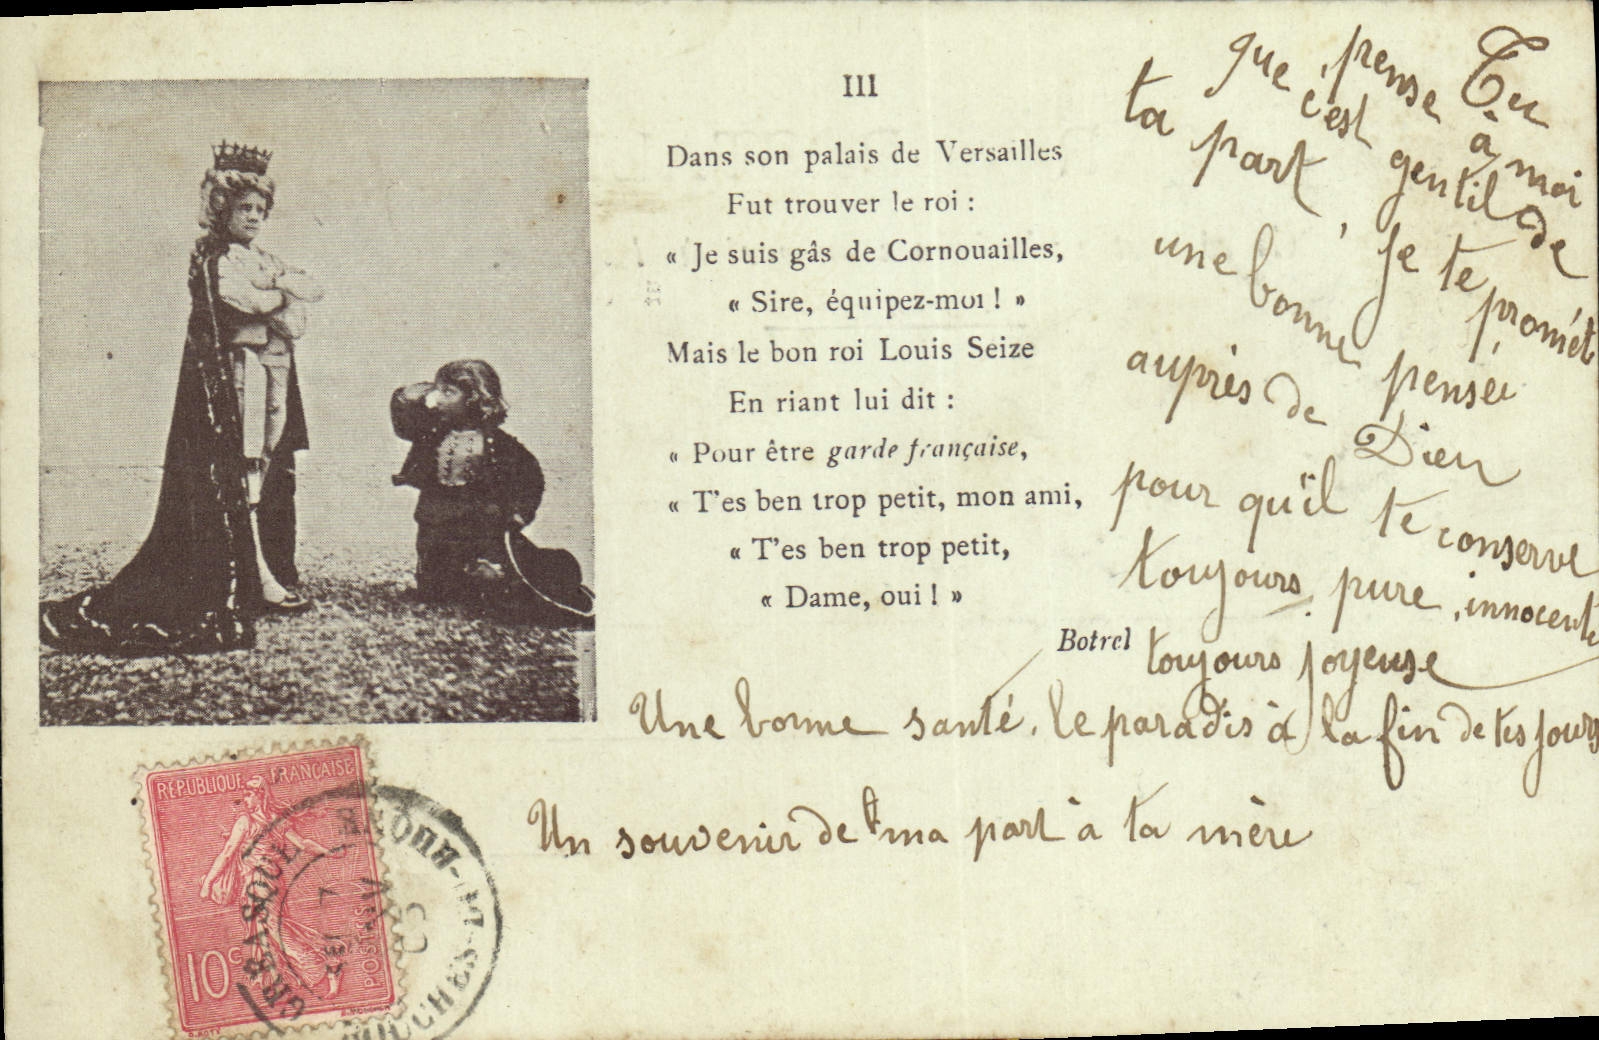 III
Dans son palais de Versailles
Fut trouver le roi :
« Je suis gâs de Cornouailles,
« Sire, équipez-moi ! »
Mais le bon roi Louis Seize
En riant lui dit :
« Pour être garde française,
« T'es ben trop petit, mon ami,
« T'es ben trop petit,
« Dame, oui ! »
Botrel
Tu
que pense à moi
c'est gentil de
ta part, Je te promèt
une bonne pensée
auprès de Dieu
pour qu'il te conserve
toujours pure, innocente
toujours joyeuse
Une bonne santé, le paradis à la fin de tes jours
Un souvenir de ma part à ta mère
REPUBLIQUE FRANÇAISE
10c
POSTES
O. ROTY
BOUCHES-DU-RHONE